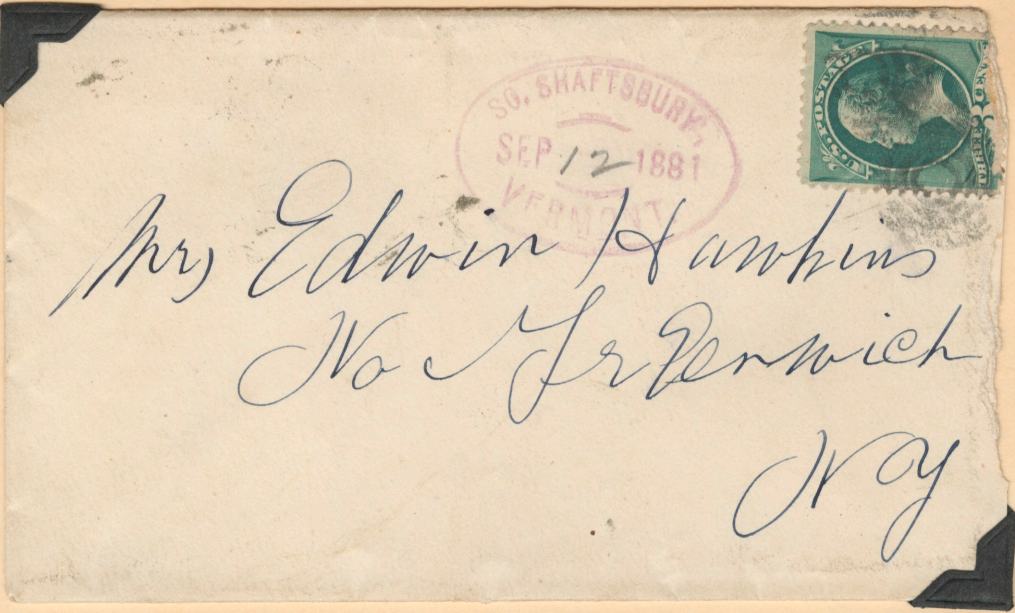 SO. SHAFTSBURY,
SEP 12 1881
VERMONT
U.S. POSTAGE
Mrs Edwin Hawkins
No Greenwich
N Y